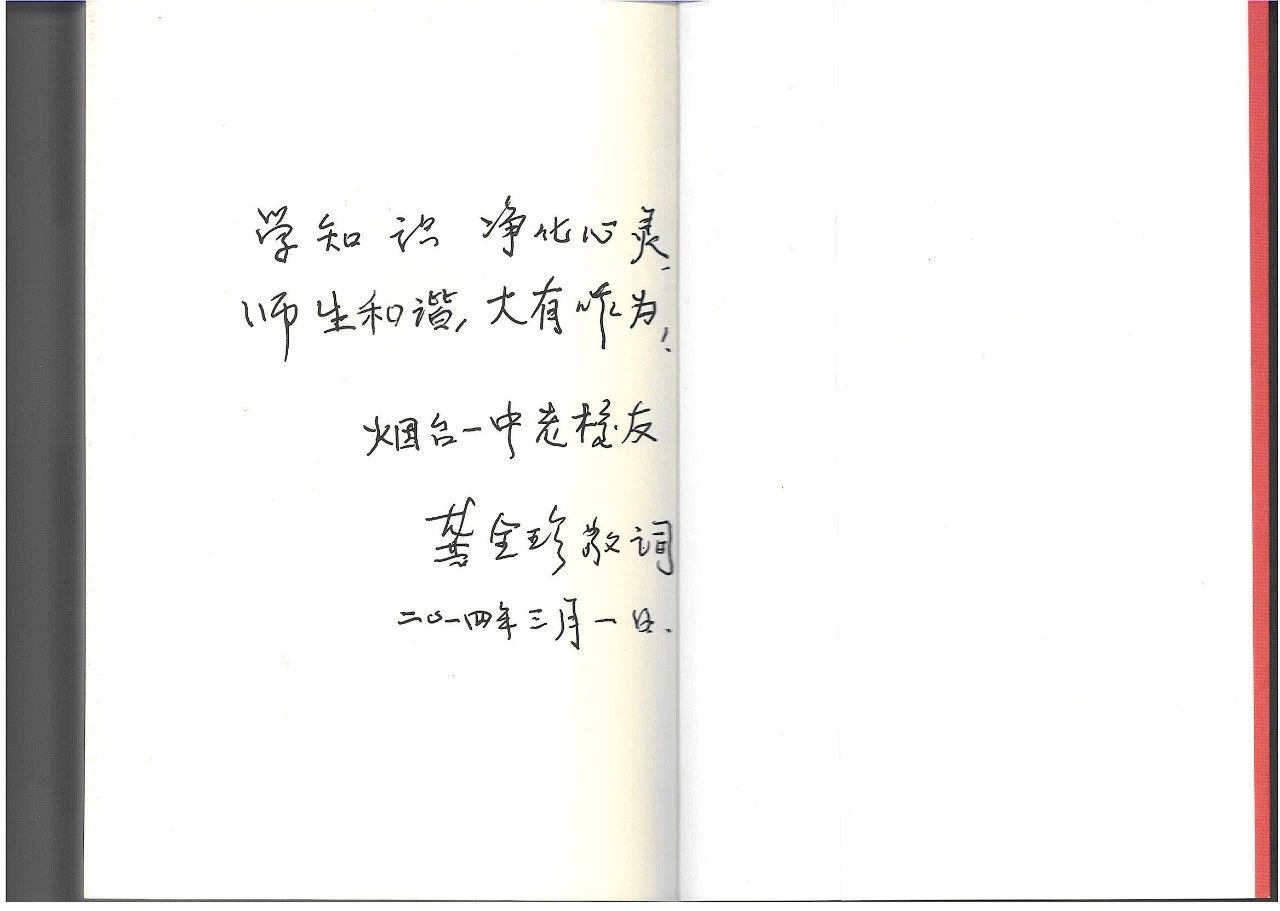 学知识 净化心灵、
师生和谐,大有作为!
烟台一中老校友
龚全珍敬词
二〇一四年三月一日.